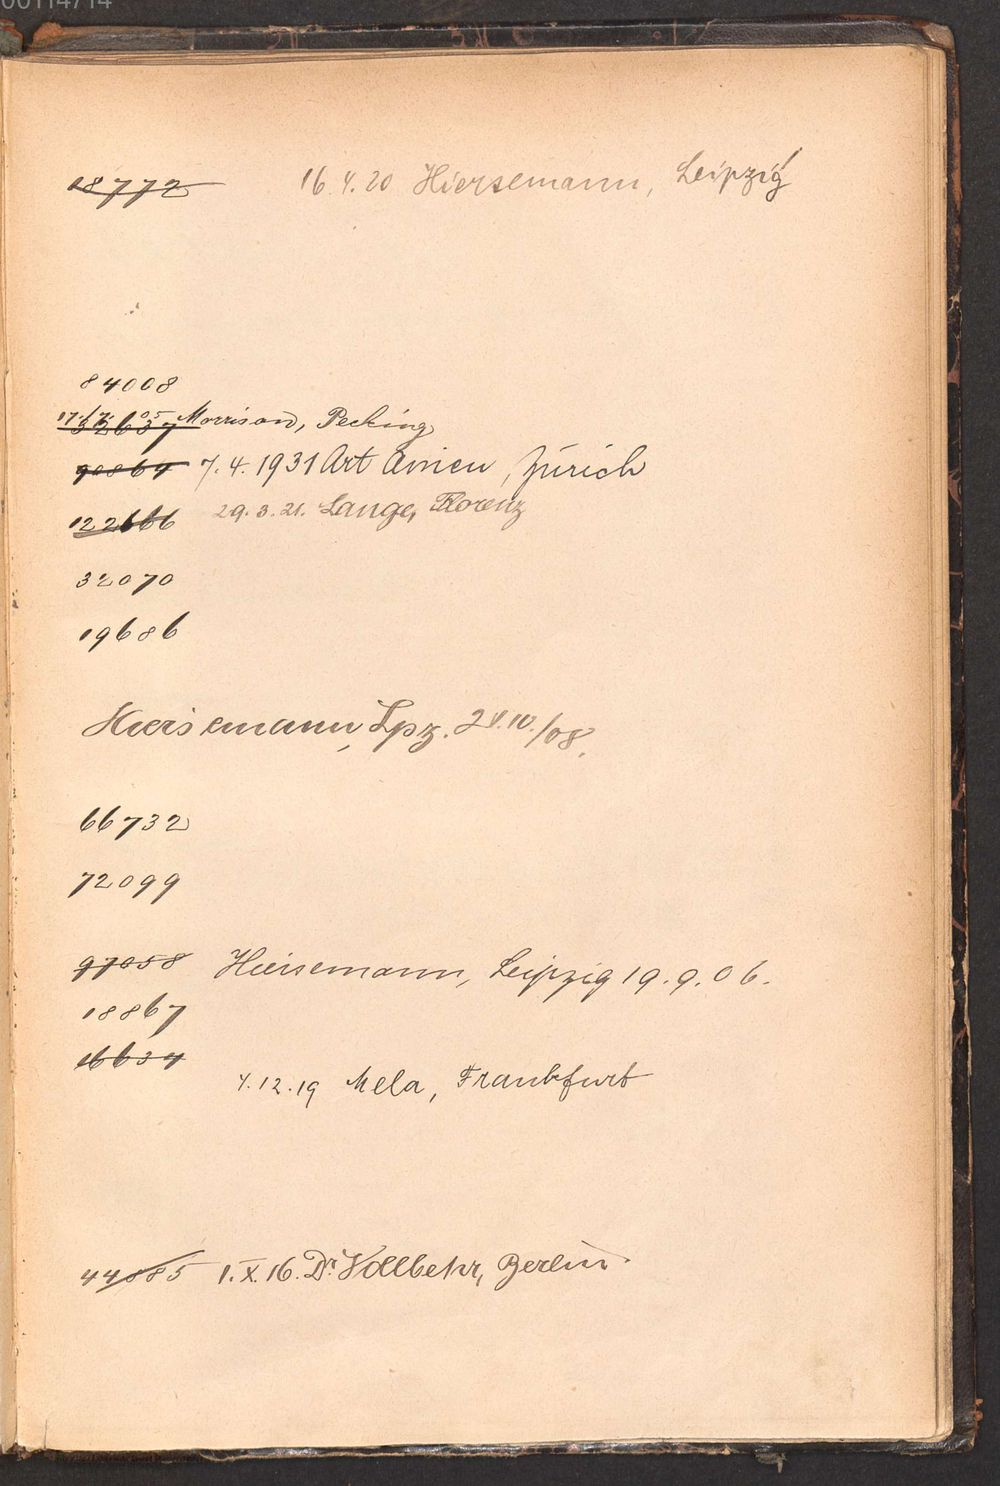 00114714
18772 16.4.20 Hiersemann, Leipzig
84008
Morrison, Pecking
90864 7.4.1931 Art Ancien, Zürich
122666 29.3.21. Lange, Florenz
32070
19686
Hiersemann, Lpz. 28.10./08.
66732
72099
97058 Hiersemann, Leipzig 19.9.06.
18867
16634
4.12.19 Mela, Frankfurt
44885 1.X.16. Dr. Vollbehr, Berlin.